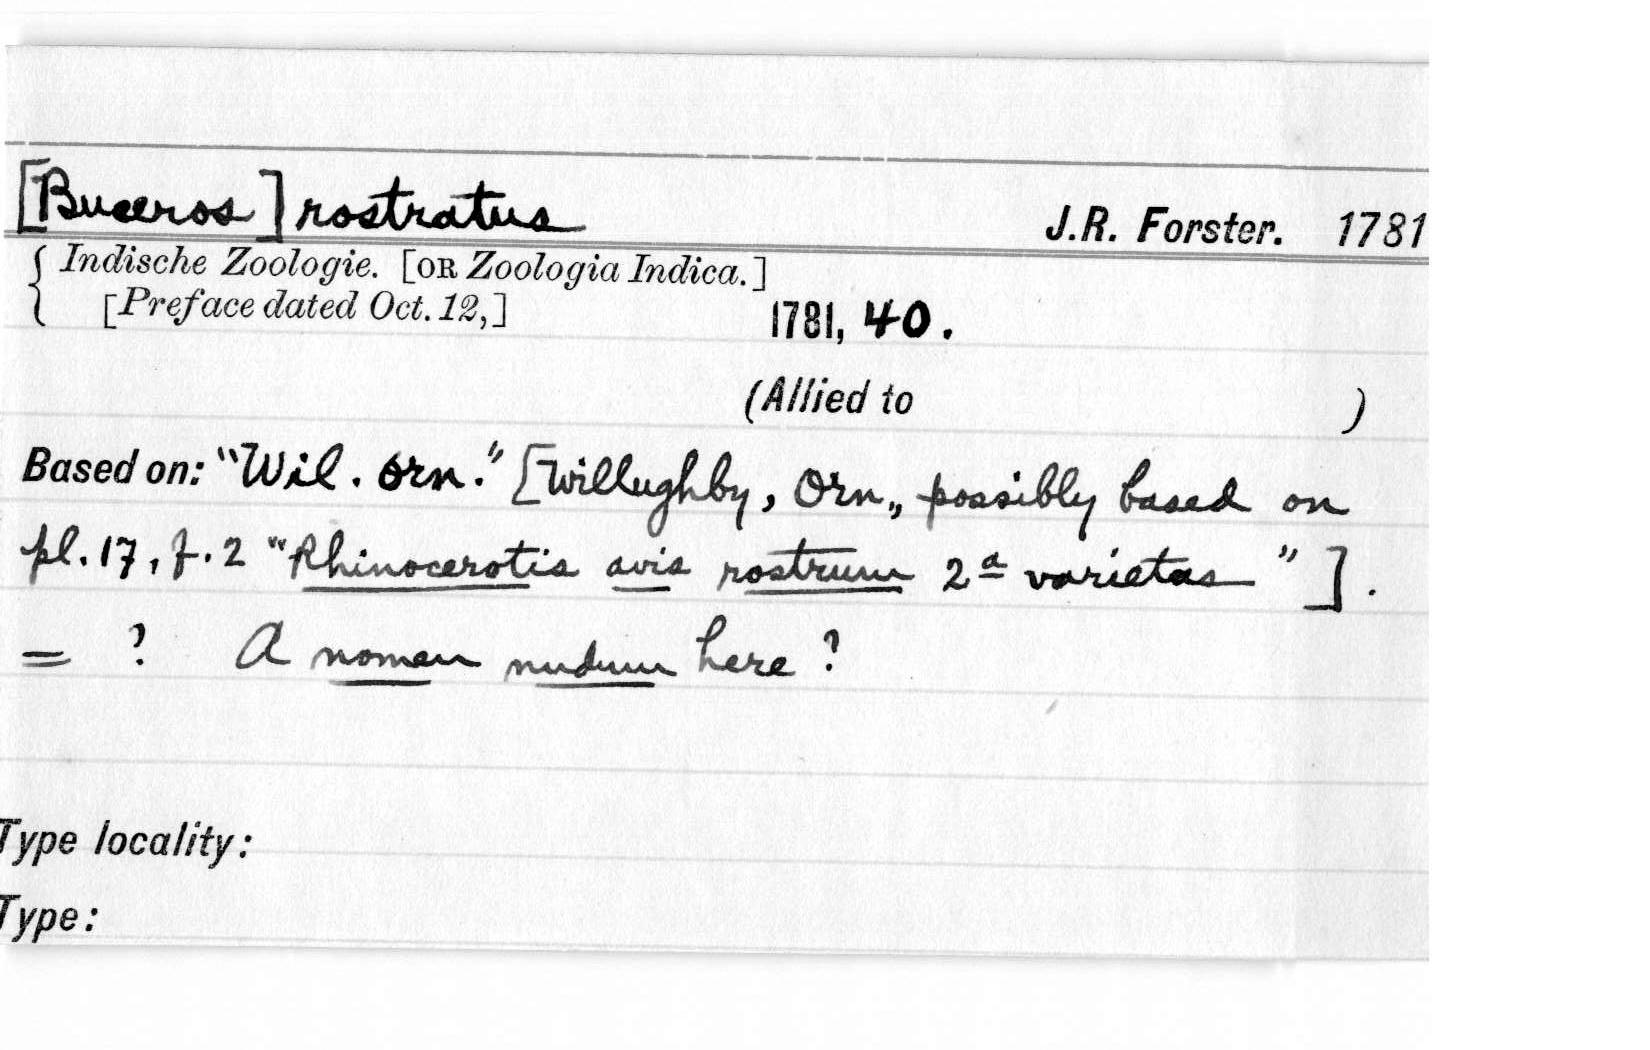 [Buceros] rostratus J.R. Forster. 1781
{ Indische Zoologie. [OR Zoologia Indica.]
[Preface dated Oct. 12,] 1781, 40.
(Allied to )
Based on: "Wil. Orn." [Willughby, Orn., possibly based on
pl. 17, f. 2 "Rhinocerotis avis rostrum 2ª varietas"].
= ? A nomen nudum here?
Type locality:
Type: